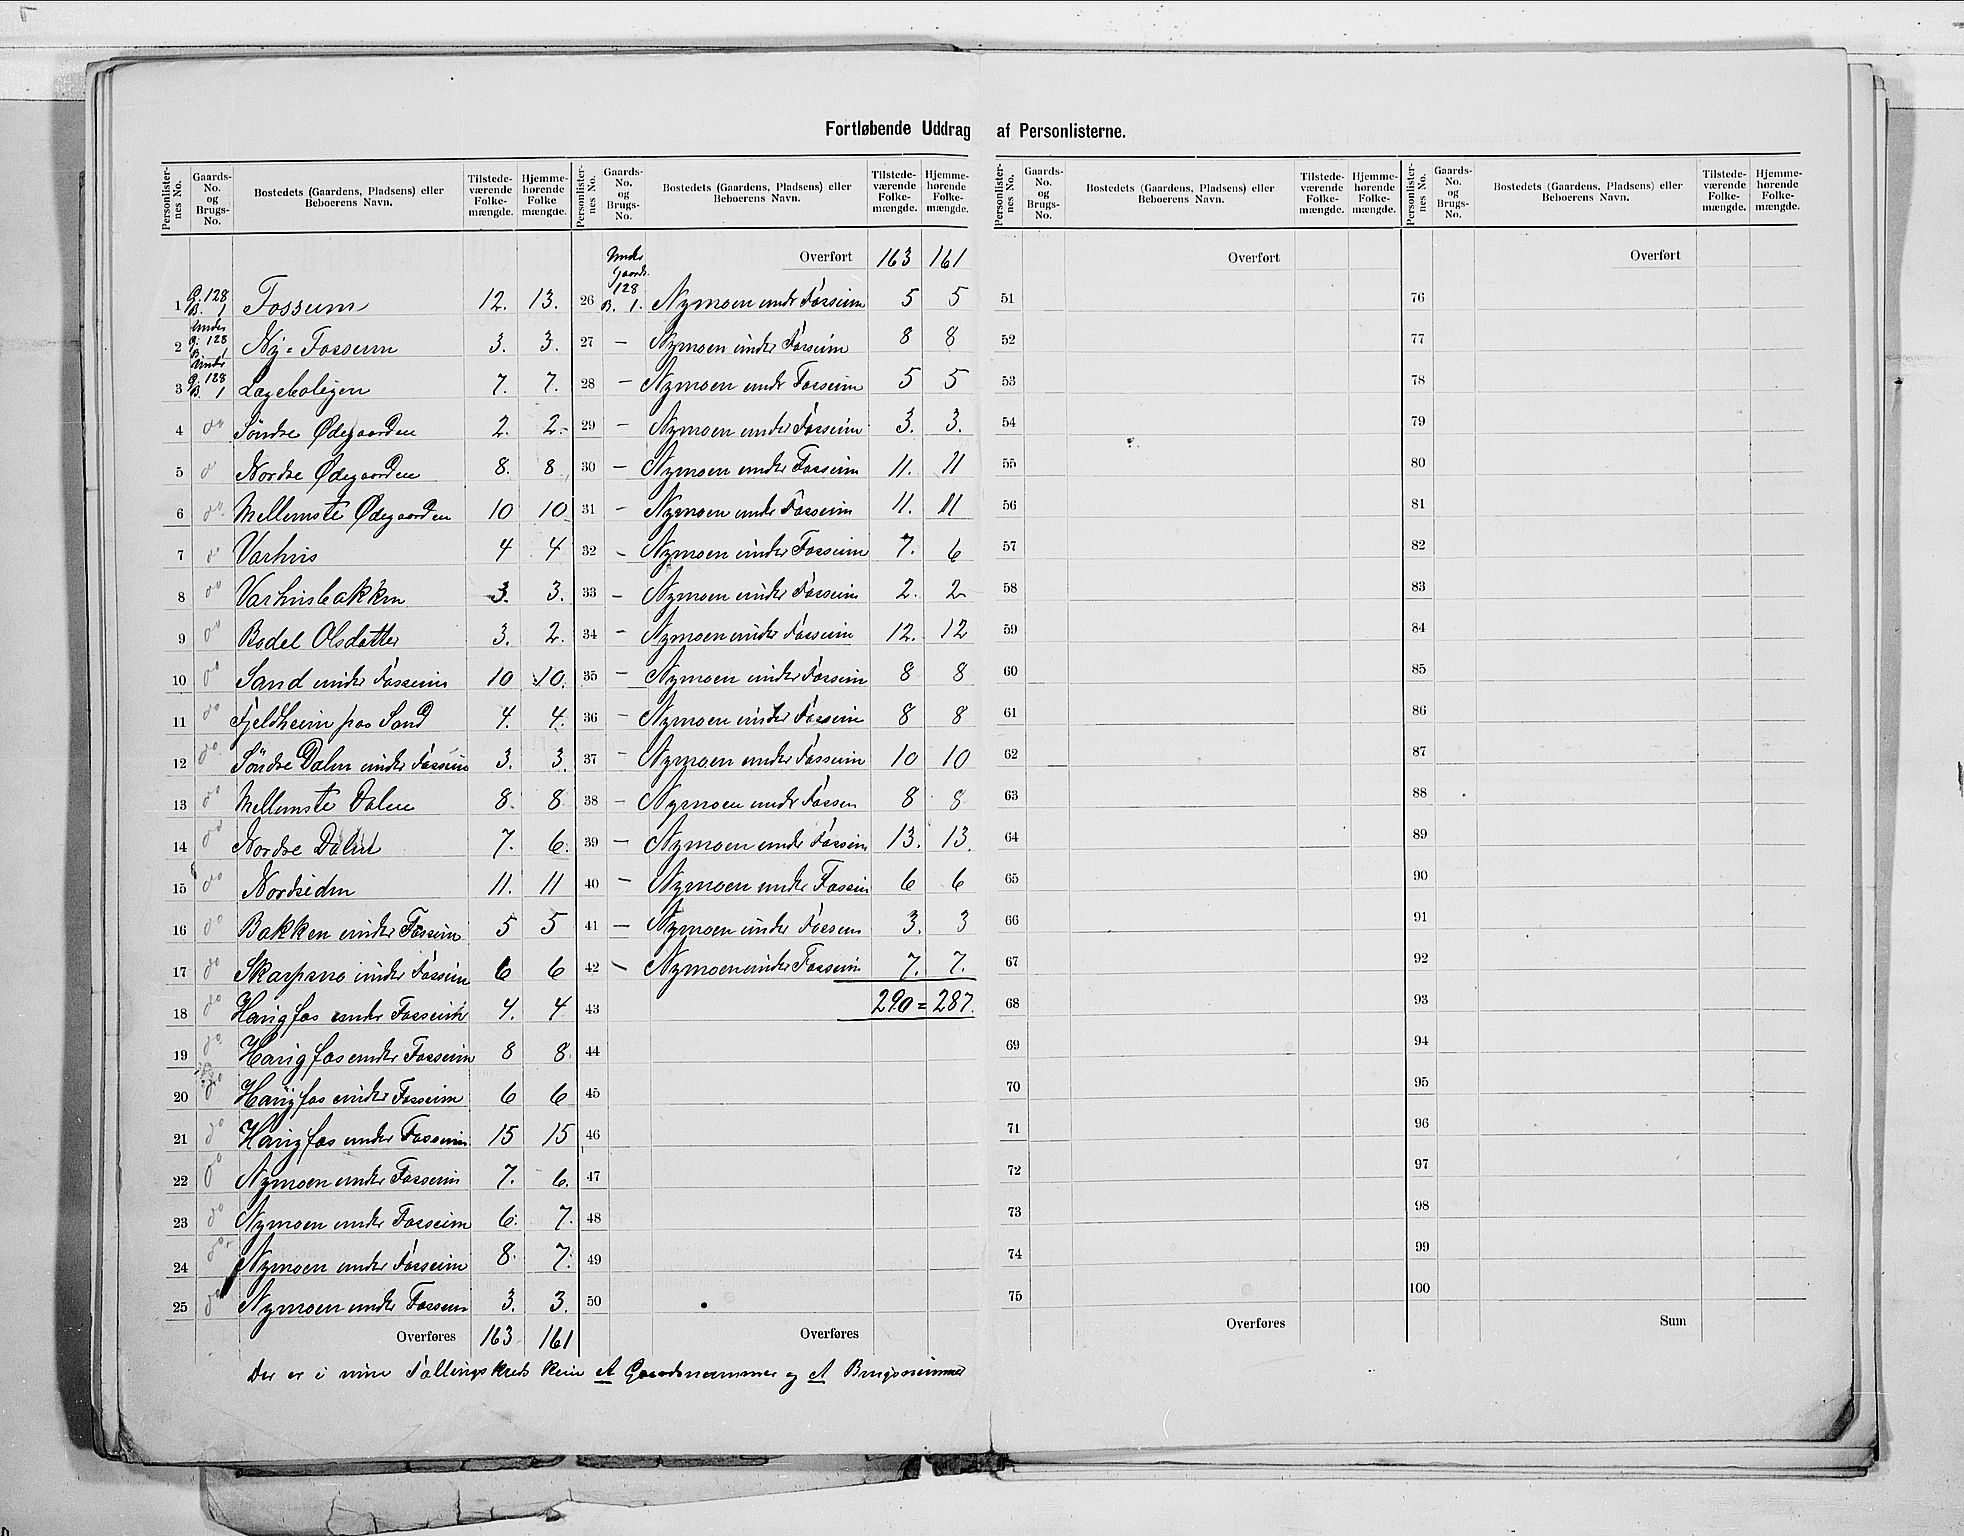 Fortløbende Uddrag af Personlisterne.
Personlister-nes No. Gaards-No. og Brugs-No. Bostedets (Gaardens, Pladsens) eller Beboerens Navn. Tilstede-værende Folke-mængde. Hjemme-hørende Folke mængde.
1 G. 128 B. 1 Fossum 12. 13.
2 Under G. 128 B. 1 Ny-Fossum 3. 3.
3 Under G. 128 B. 1 Lægeboligen 7. 7.
4 do Söndre Ødegaarden 2. 2.
5 do Nordre Ødegaarden 8. 8
6 do Mellemste Ødegaarden 10 10
7 do Varhus 4 4
8 do Varhusbakken 3. 3.
9 do Bodel Olsdatter 3. 2.
10 do Sand under Fossum 10 10.
11 do Fjeldheim paa Sand 4. 4.
12 do Söndre Dalen under Fossum 3. 3.
13 do Mellemste Dalen 8. 8
14 do Nordre Dalen 7. 6.
15 do Nordsiden 11. 11
16 do Bakken under Fossum 5 5
17 do Skarpsno under Fossum 6 6
18 do Haugfos under Fossum 4. 4
19 do Haugfos under Fossum 8 8
20 do Haugfos under Fossum 6 6
21 do Haugfos under Fossum 15 15
22 do Nymoen under Fossum 7. 6.
23 do Nymoen under Fossum 6. 7.
24 do Nymoen under Fossum 8. 7.
25 do Nymoen under Fossum 3. 3.
Overføres 163 161
Personlister-nes No. Gaards-No. og Brugs-No. Bostedets (Gaardens, Pladsens) eller Beboerens Navn. Tilstede-værende Folke-mængde. Hjemme-hørende Folke-mængde.
Overført 163 161
26 Under Gaards. 128 B. 1. Nymoen under Fossum 5 5
27 – Nymoen under Fossum 8 8
28 – Nymoen under Fossum 5 5
29 – Nymoen under Fossum 3. 3.
30 – Nymoen under Fossum 11. 11
31 – Nymoen under Fossum 11. 11
32 – Nymoen under Fossum 7. 6
33 – Nymoen under Fossum 2. 2
34 – Nymoen under Fossum 12. 12
35 – Nymoen under Fossum 8 8
36 – Nymoen under Fossum 8 8
37 – Nymoen under Fossum 10 10
38 – Nymoen under Fossum 8 8
39 – Nymoen under Fossum 13. 13.
40 – Nymoen under Fossum 6 6
41 – Nymoen under Fossum 3. 3
42 – Nymoen under Fossum 7. 7.
43 290 = 287.
44
45
46
47
48
49
50
Overføres
Der er i min Tællingskreds kun et Gaardsnummer og et Brugsnummer
Personlister-nes No. Gaards-No. og Brugs-No. Bostedets (Gaardens, Pladsens) eller Beboerens Navn. Tilstede-værende Folke-mængde. Hjemme-hørende Folke-mængde.
Overført
51
52
53
54
55
56
57
58
59
60
61
62
63
64
65
66
67
68
69
70
71
72
73
74
75
Overføres
Personlister-nes No. Gaards-No. og Brugs-No. Bostedets (Gaardens, Pladsens) eller Beboerens Navn. Tilstede-værende Folke-mængde. Hjemme-hørende Folke-mængde.
Overført
76
77
78
79
80
81
82
83
84
85
86
87
88
89
90
91
92
93
94
95
96
97
98
99
100
Sum